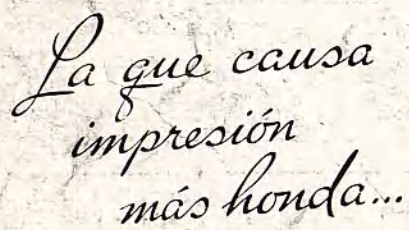 La que causa
impresión
más honda...